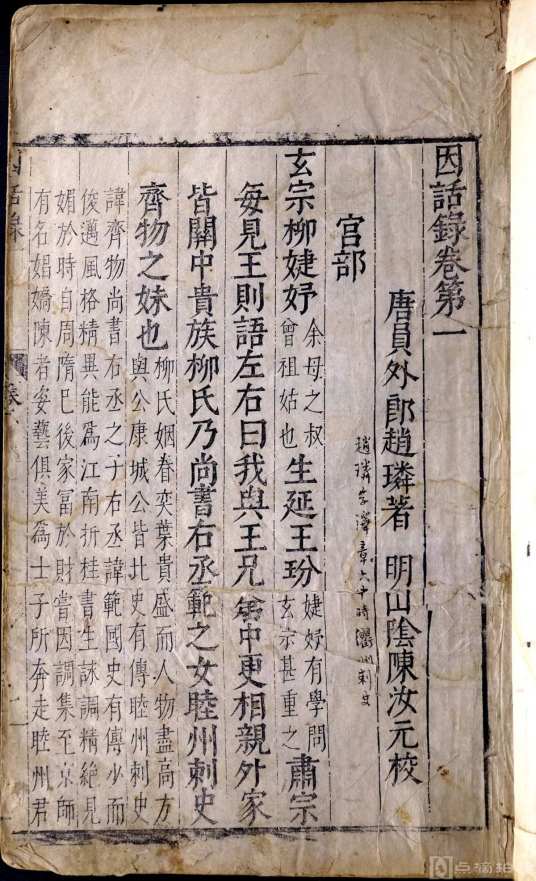 因話錄卷第一
唐員外郎趙璘著 明山陰陳汝元校
趙璘字澤章大中時衢州刺史
宮部
玄宗柳婕妤余母之叔曾祖姑也生延王玢婕妤有學問玄宗甚重之肅宗
每見王則語左右曰我與王兄弟中更相親外家
皆關中貴族柳氏乃尚書右丞範之女睦州刺史
齊物之妹也柳氏姻眷奕葉貴盛而人物盡高方與公康城公皆北史有傳睦州刺史
諱齊物尚書右丞之子右丞諱範國史有傳少而
俊邁風格精異能為江南折桂書生詠調精絕見
媚於時自周隋已後家富於財嘗因調集至京師
有名娼嬌陳者姿藝俱美為士子所奔走睦州君
點滴拍